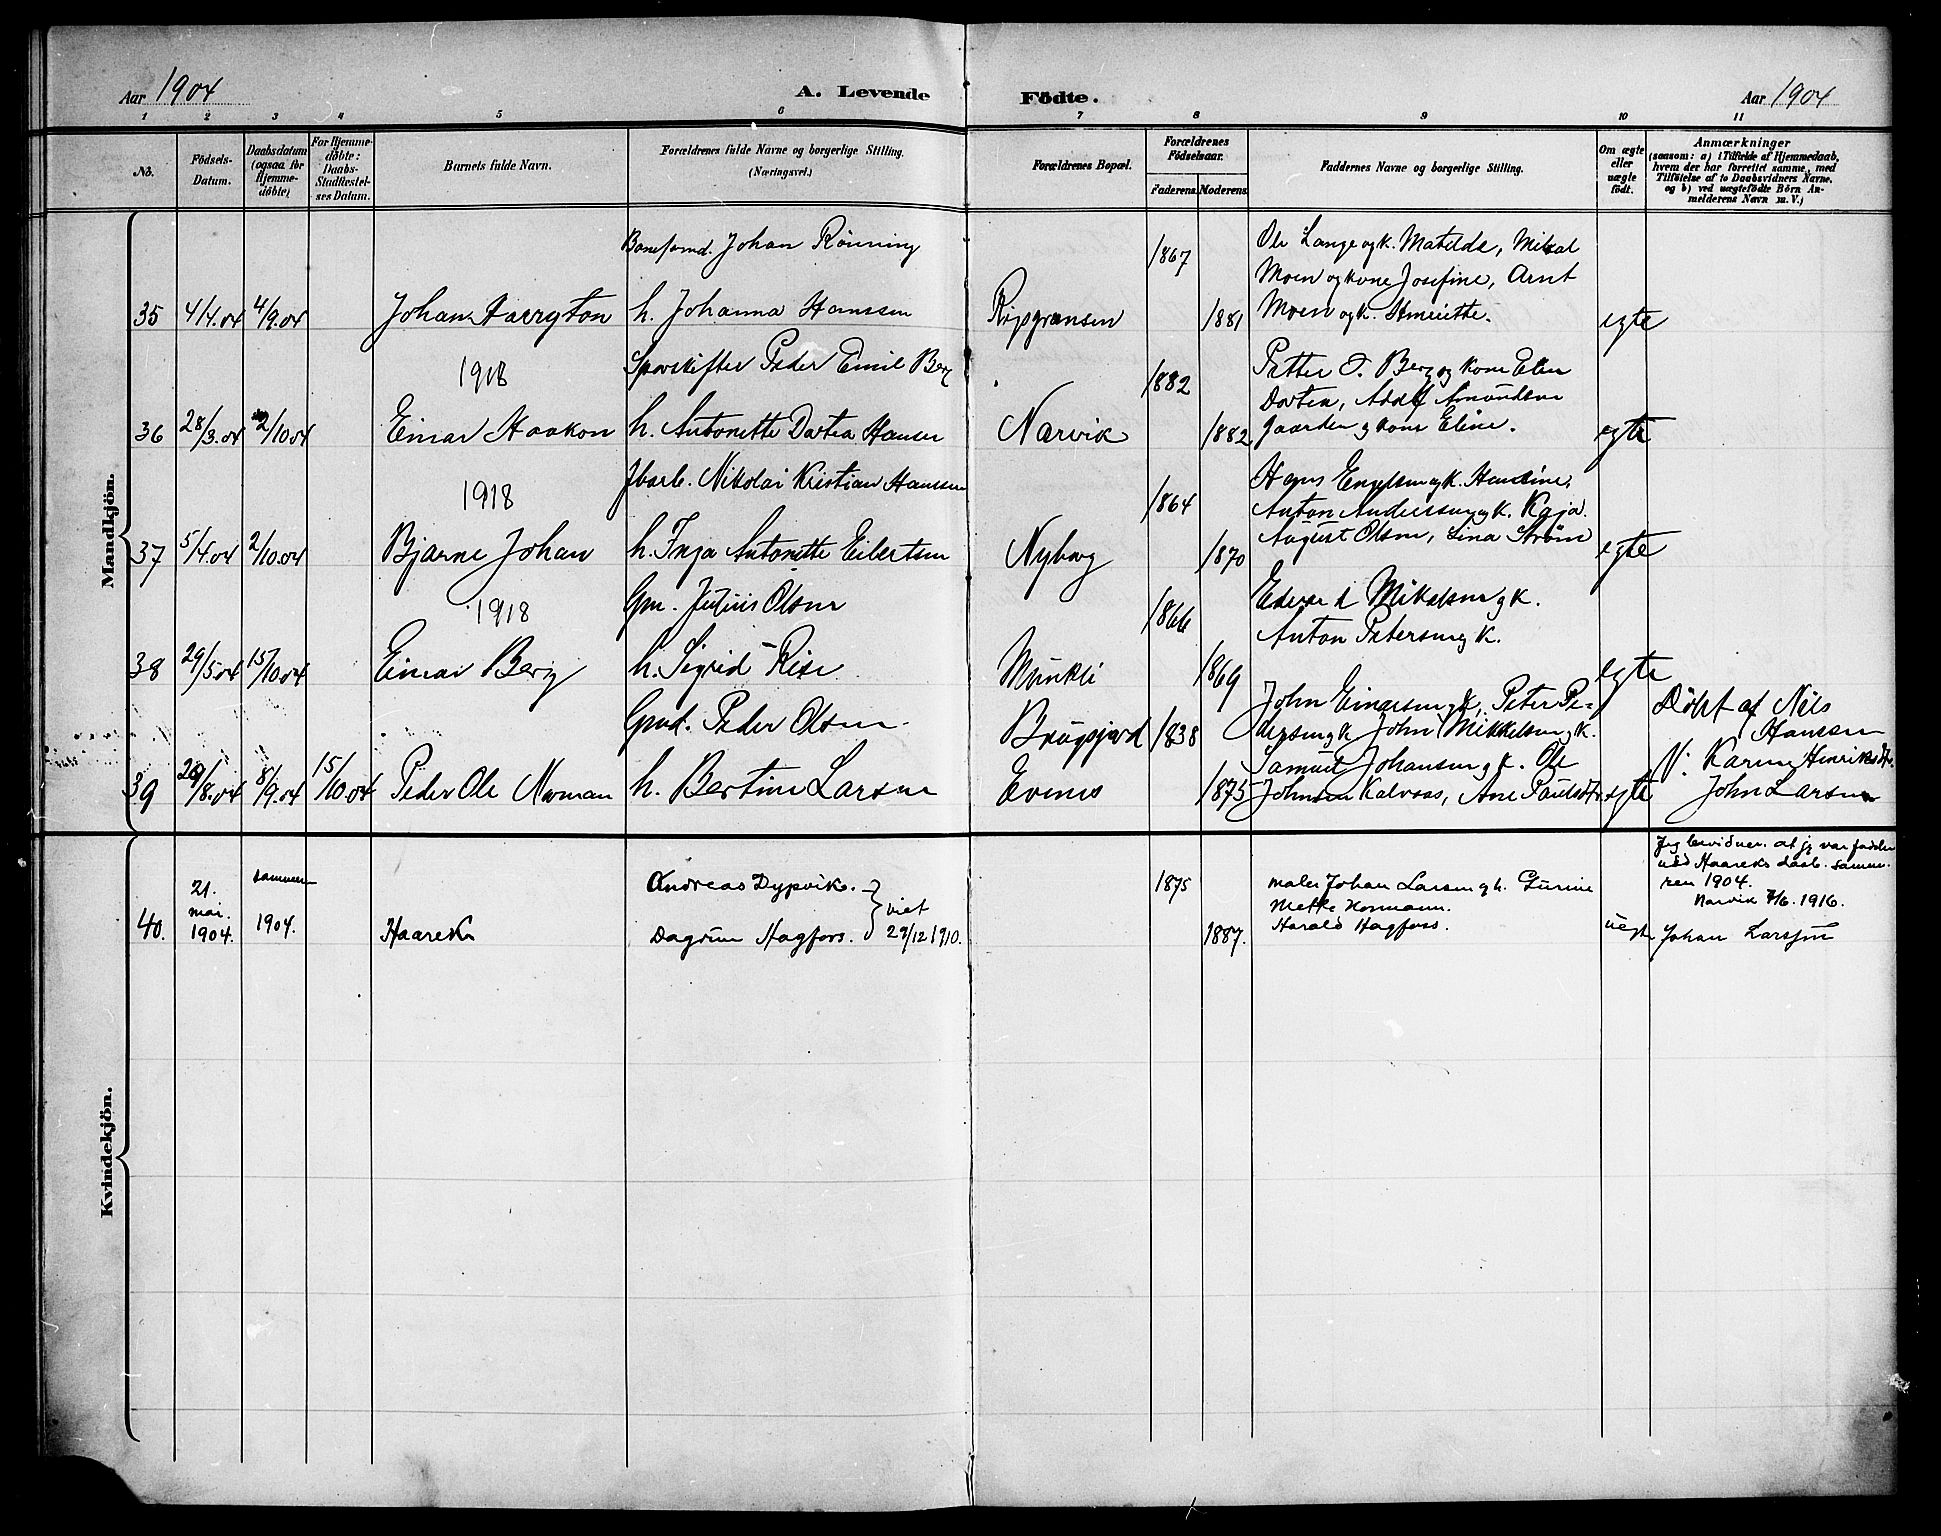 Aar 1904
A. Levende Födte.
Aar 1904
1 2 3 4 5 6 7 8 9 10 11
No.
Födsels-
Datum.
Daabsdatum
(ogsaa for
Hjemme-
döbte)
For Hjemme-
döbte:
Daabs-
Stadfæstel-
ses Datum.
Barnets fulde Navn.
Forældrenes fulde Navne og borgerlige Stilling.
(Næringsvei.)
Forældrenes Bopæl.
Forældrenes
Födselsaar.
Faderens. Moderens.
Faddernes Navne og borgerlige Stilling.
Om ægte
eller
uægte
födt.
Anmærkninger
(saasom: a) i Tilfælde af Hjemmedaab,
hvem der har forrettet samme, med
Tilföielse af to Daabsvidners Navne,
og b) ved uægtefödte Börn An-
melderens Navn m. V.)
Mandkjön.
35 4/4.04 4/9.04
Johan Harryton
Johan Rönning
h. Johanna Hanssen
Rigsgrænsen
1867
1881
Ole Lange og k. Matilde, Mikal
Moen og kone Josefine, Arnt
Moen og k.
egte
1918
36 28/3.04 2/10.04
Einar Haakon
Peder Emil Berg
h. Antonette Dortea Hansen
Narvik
1882
1882
Petter J. Berg og kone Elen
Dortea, Adolf Amundsen
Gaarden og kone Eline.
egte
1918
37 5/4.04 2/10.04
Bjarne Johan
Jbarb. Nikolai Kristian Hanssen
h. Inga Antonette Eibertsen
Nyborg
1864
1870
Hans Engelsen og k. Hansine,
Anton Anderssen og k. Kaja.
August Olsen, Lina Ström
egte
1918
38 29/5.04 15/10.04
Einar Berg
Gm. Julius Olsen
h. Sigrid Rise
Munkli
1866
1869
Edvard Mikalsen og k.
Anton Petersen og k.
egte
39 29/8.04 8/9.04 15/10.04
Peder Ole Norman
Gmd. Peder Olsen
h. Bertine Larsen
Evenes
1838
1875
John Einarsen og k., Peter Pe-
dersen og k John Mikkelsen og k.
Samuel Johansen og k. Ole
Johnsen Kalvaas, Ane Paulsdtr.
egte
Döbt af Nils
Hanssen
V: Karen Henriksdtr.
John Larsen
Kvindekjön.
40. 21.
mai.
1904.
sammen
1904.
Haarek
Andreas Dypvik.
Dagrun Hagfors.
viet
29/12 1910.
1875
1887.
maler Johan Larsen og h. Gurine
Mette Normann.
Harald Hagfors.
uegte
Jeg bevidner. at jeg var fadder
ved Haareks daab. sammen-
ren 1904.
Narvik 7/6. 1916.
Johan Larssen